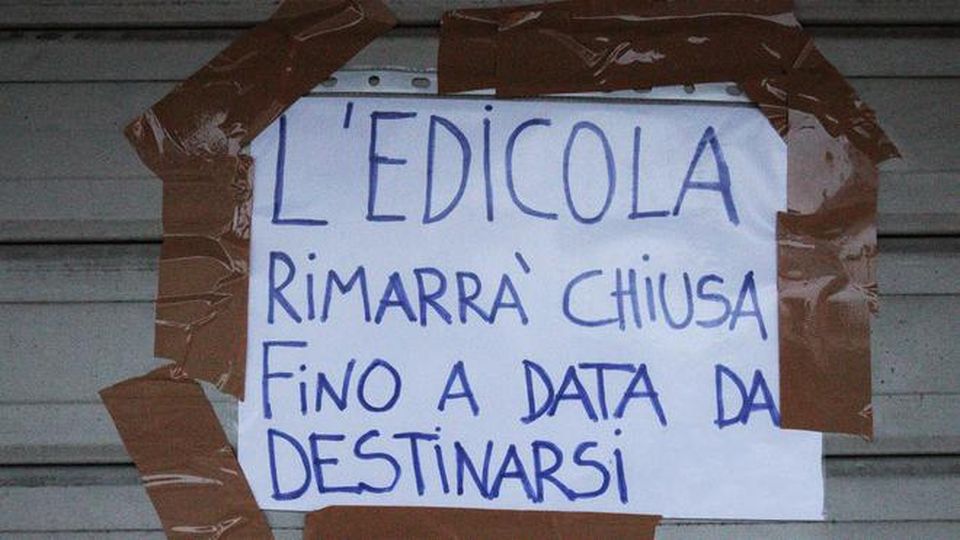 L'EDICOLA
RIMARRÀ CHIUSA
FINO A DATA DA
DESTINARSI